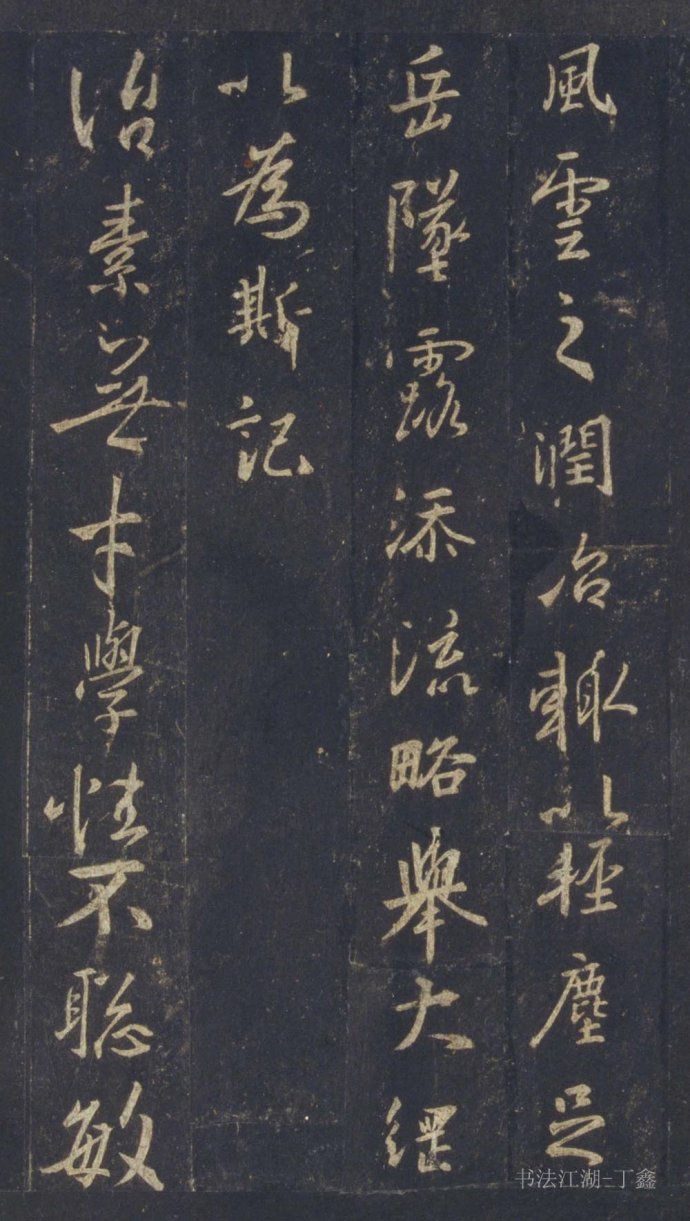 風雲之潤冶輙以輕塵足
岳墜露添流略舉大綱
以為斯記
治素無才學性不聰敏
书法江湖-丁鑫